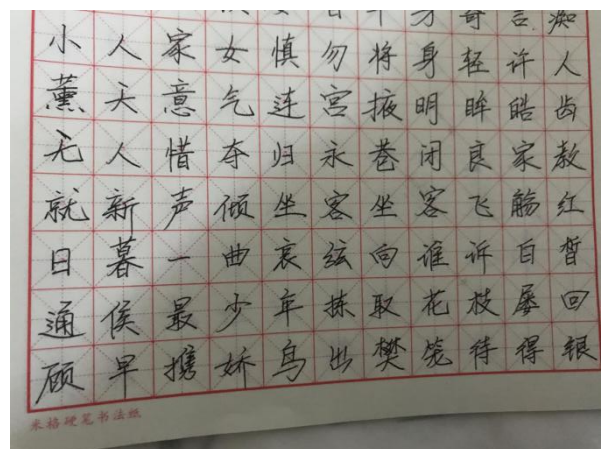 言痴
小人家女慎勿将身轻许人
薰天意气连宫掖明眸皓齿
无人惜夺归永巷闭良家教
就新声倾坐客坐客飞觞红
日暮一曲哀絃向谁诉白皙
通侯最少年拣取花枝屡回
顾早携娇鸟出樊笼待得银
米格硬笔书法纸